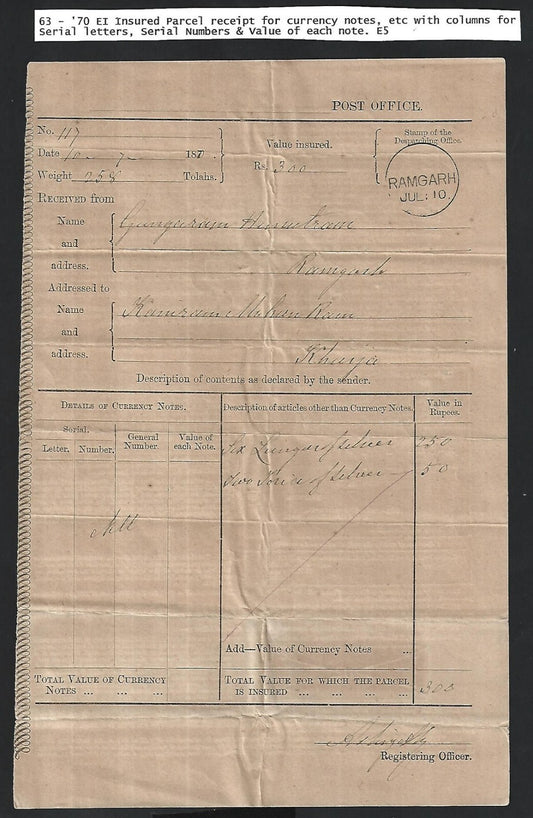 63 - '70 EI Insured Parcel receipt for currency notes, etc with columns for
Serial letters, Serial Numbers & Value of each note. E5
POST OFFICE.
No. 117
Date 10 - 7 - 187
Weight 258 Tolahs.
Value insured.
Rs. 300
Stamp of the
Despatching Office.
RAMGARH
JUL: 10.
RECEIVED from
Name
and
address.
Ramgarh
Addressed to
Name
and
address.
Ram
Khurja
Description of contents as declared by the sender.
DETAILS OF CURRENCY NOTES.
Serial.
Letter. Number.
General
Number.
Value of
each Note.
Description of articles other than Currency Notes.
Value in
Rupees.
Six of silver 250
Two of silver 50
Nill
Add—Value of Currency Notes ...
TOTAL VALUE OF CURRENCY
NOTES ... ... ...
TOTAL VALUE FOR WHICH THE PARCEL
IS INSURED ... ... ... ... 300
Registering Officer.